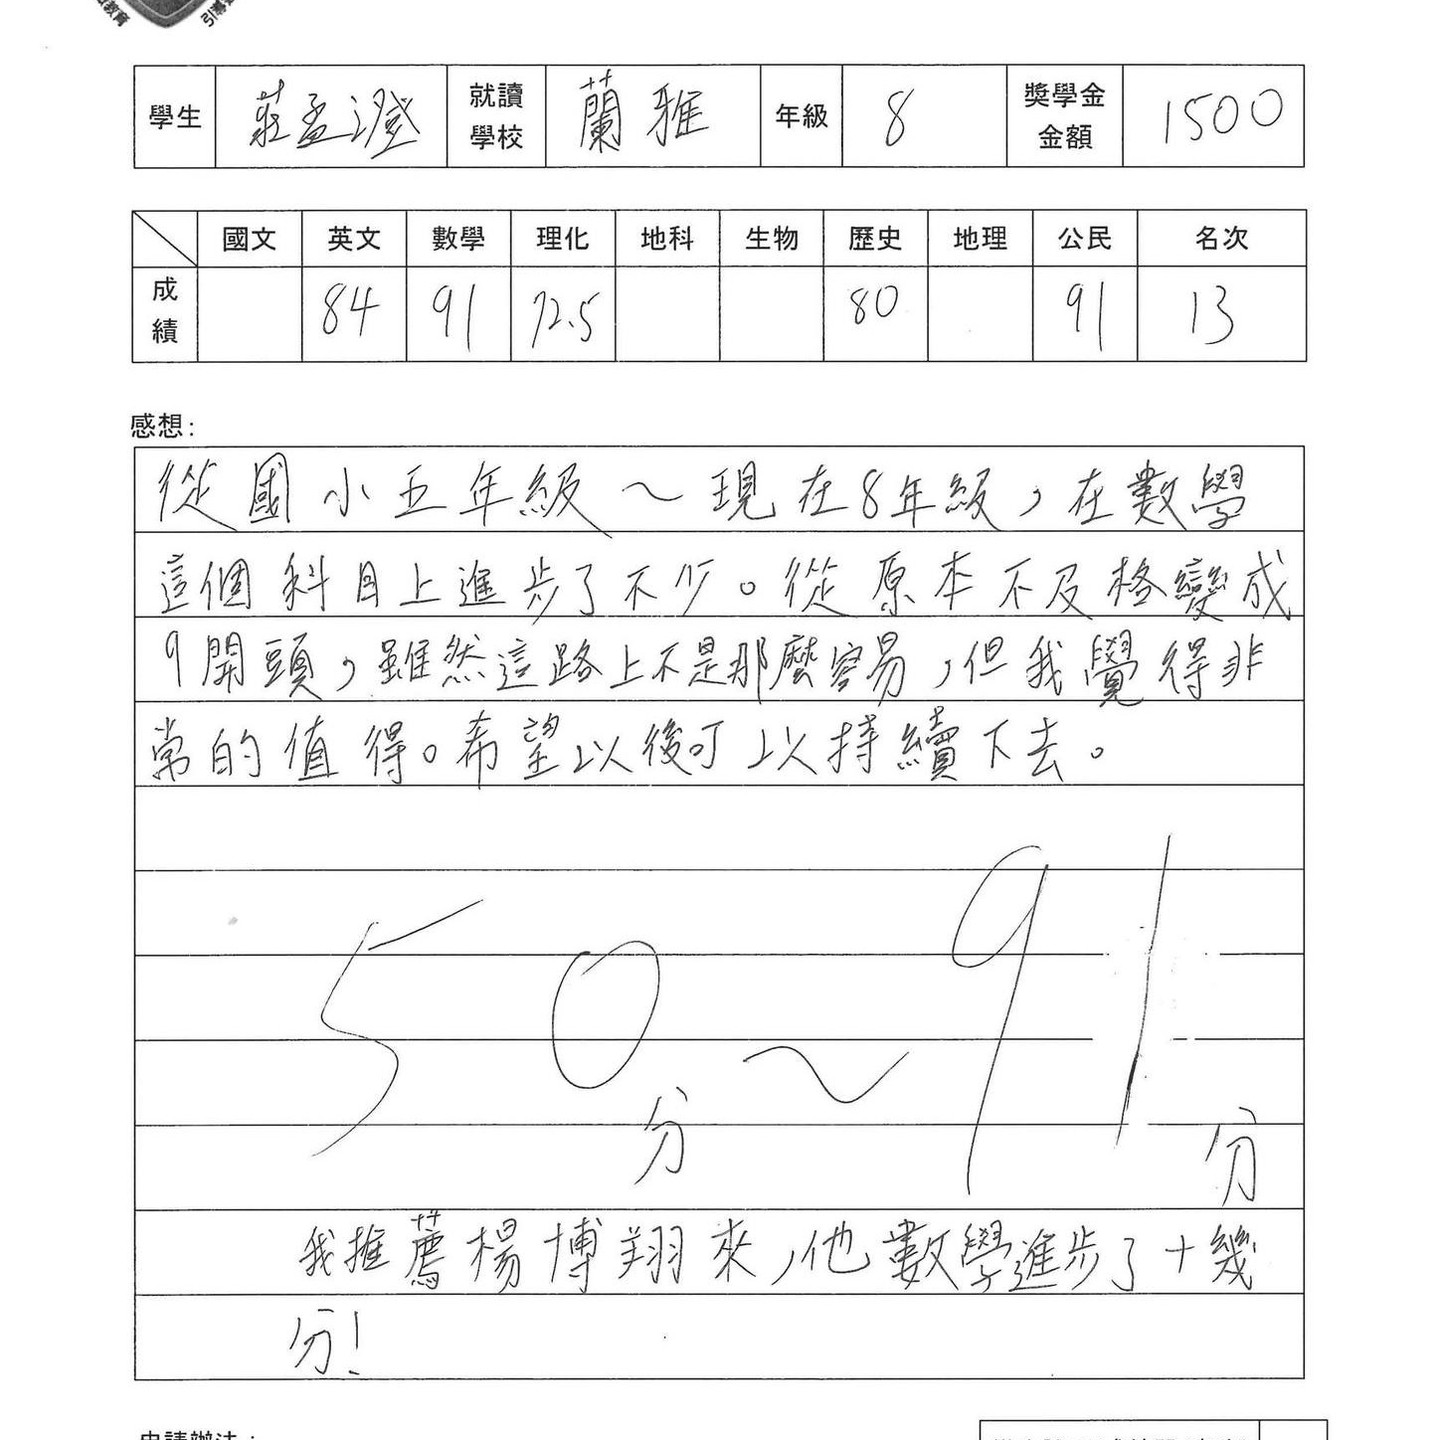 教育
學生 莊孟澄 就讀學校 蘭雅 年級 8 獎學金金額 1500
國文 英文 數學 理化 地科 生物 歷史 地理 公民 名次
成績 84 91 72.5 80 91 13
感想:
從國小五年級～現在8年級，在數學
這個科目上進步了不少。從原本不及格變成
9開頭，雖然這路上不是那麼容易，但我覺得非
常的值得。希望以後可以持續下去。
50分～91分
我推薦楊博翔來，他數學進步了十幾
分!
申請辦法: